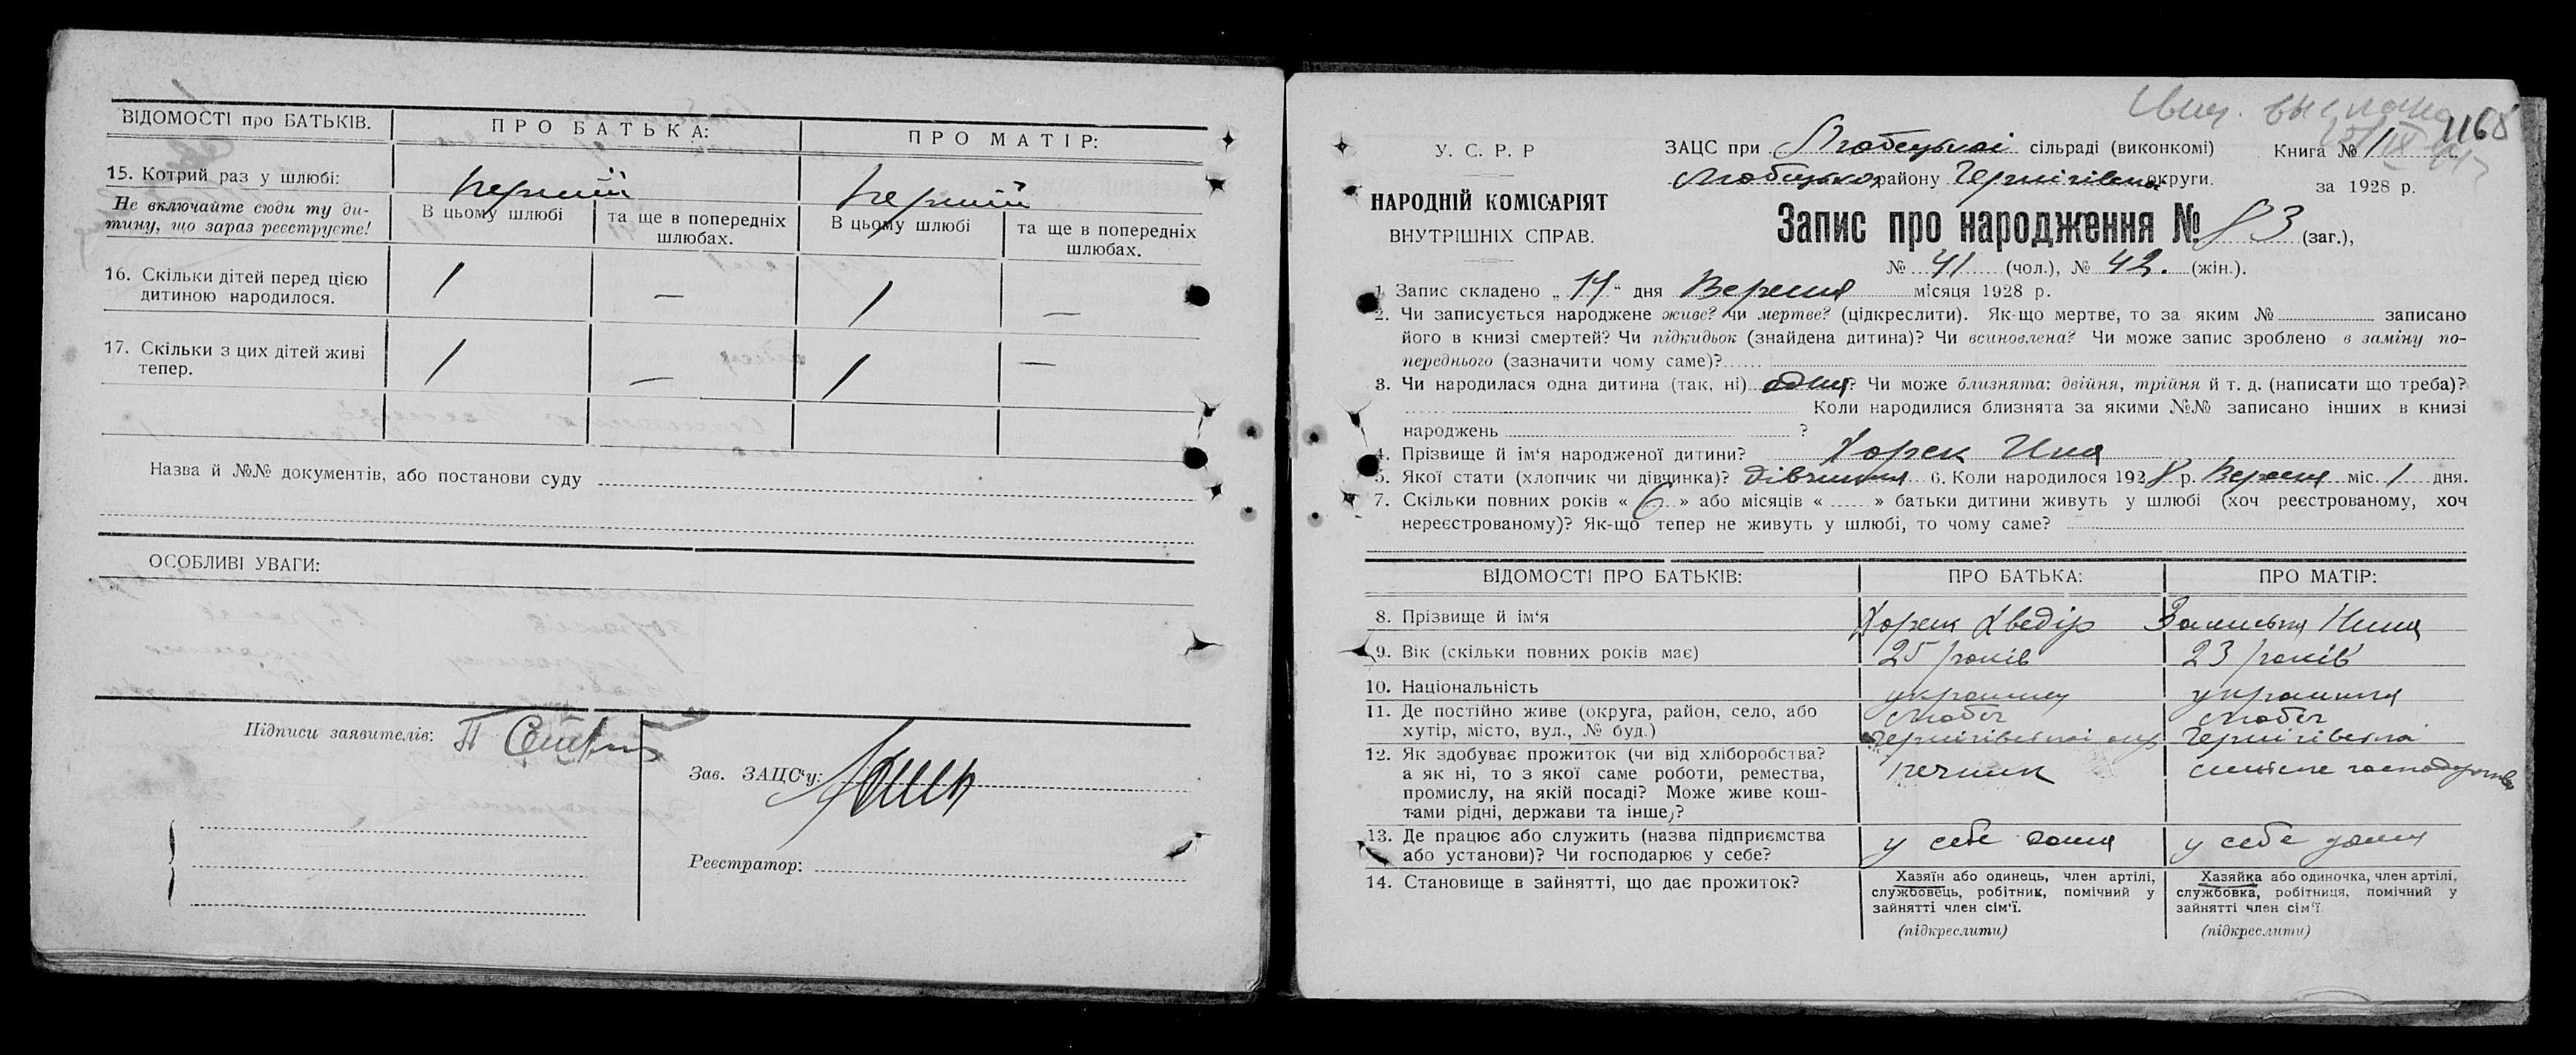 ВІДОМОСТІ про БАТЬКІВ.
ПРО БАТЬКА:
ПРО МАТІР:
15. Котрий раз у шлюбі:
перший
перший
Не включайте сюди ту ди-
тину, що зараз реєструєте!
В цьому шлюбі
та ще в попередніх
шлюбах.
В цьому шлюбі
та ще в попередніх
шлюбах.
16. Скільки дітей перед цією
дитиною народилося.
1
—
1
—
17. Скільки з цих дітей живі
тепер.
1
—
1
—
Назва й №№ документів, або постанови суду
ОСОБЛИВІ УВАГИ:
Підписи заявителів:
Зав. ЗАЦС'у:
Реєстратор:
1168
У. С. Р. Р
НАРОДНІЙ КОМІСАРІЯТ
ВНУТРІШНІХ СПРАВ.
ЗАЦС при Любецькій сільраді (виконкомі)
Книга № 1
Любецького району Чернігівської округи.
за 1928 р.
Запис про народження № 83 (заг.),
№ 41 (чол.), № 42. (жін.).
1. Запис складено „14“ дня Вересня місяця 1928 р.
2. Чи записується народжене живе? чи мертве? (підкреслити). Як-що мертве, то за яким № записано
його в книзі смертей? Чи підкидьок (знайдена дитина)? Чи всиновлена? Чи може запис зроблено в заміну по-
переднього (зазначити чому саме)?
3. Чи народилася одна дитина (так, ні) одна? Чи може близнята: двійня, трійня й т. д. (написати що треба)?
Коли народилися близнята за якими №№ записано інших в книзі
народжень ?
4. Прізвище й ім'я народженої дитини? Хорек Інна
5. Якої стати (хлопчик чи дівчинка)? дівчина 6. Коли народилося 1928 р. Вересня міс. 1 дня.
7. Скільки повних років « 6 » або місяців « » батьки дитини живуть у шлюбі (хоч реєстрованому, хоч
нереєстрованому)? Як-що тепер не живуть у шлюбі, то чому саме?
ВІДОМОСТІ ПРО БАТЬКІВ:
ПРО БАТЬКА:
ПРО МАТІР:
8. Прізвище й ім'я
Хорек Хведір
Нина
9. Вік (скільки повних років має)
25 років
23 років
10. Національність
українец
українка
11. Де постійно живе (округа, район, село, або
хутір, місто, вул., № буд.)
Любеч
Чернігівської окр
Любеч
Чернігівської
12. Як здобуває прожиток (чи від хліборобства?
а як ні, то з якої саме роботи, ремества,
промислу, на якій посаді? Може живе кош-
тами рідні, держави та інше,?
печник
сільське господарство
13. Де працює або служить (назва підприємства
або установи)? Чи господарює у себе?
у себе дома
у себе дома
14. Становище в зайнятті, що дає прожиток?
Хазяїн або одинець, член артілі,
службовець, робітник, помічний у
зайнятті член сім'ї.
(підкреслити)
Хазяйка або одиночка, член артілі,
службовка, робітниця, помічний у
зайнятті член сім'ї
(підкреслити)